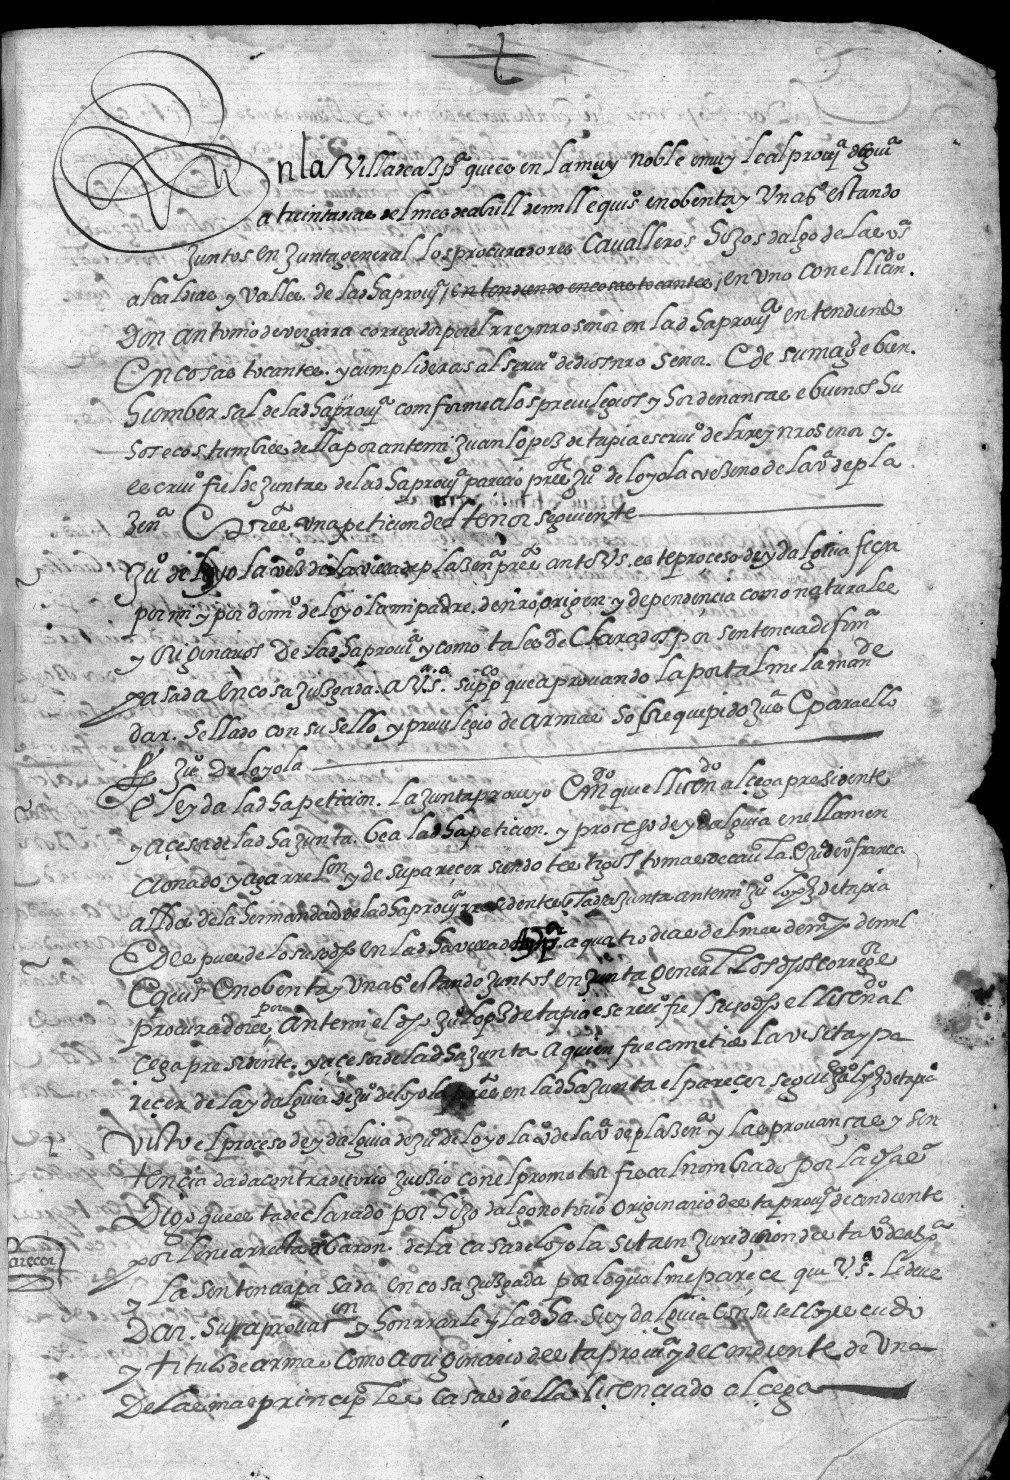 En la Villa de azpª que es en la muy noble e muy leal provª de guiª
a treinta dias del mes de abrill de mill e quisº e nobenta y Un aºs estando
Juntos en Junta general los procuradores Cavalleros hijos dalgo de las vªs
alcaldias y valles de la dha provª, entendiendo en cosas tocantes, en uno con el licendo.
Don antonio de vergara corregidor por el rrey nro señor en la dha provª entendiendo
En cosas tocantes y cumplideras al servº de dios nro Senor. E de su magd e bien.
huniversal de la dha provª conforme a los previllegios y hordenanças e buenos hu
sos e costumbres della por ante mi Juan lopez de tapia escrivº del rrey nro senor y.
escrivº fiel de Juntas de la dha provª parecio preste Juº de loyola vezino de la vª de pla
zenª E presª una peticion del tenor siguiente
Juº de loyola vezº de la villa de plazenª presª ante VS. este proceso de ydalguia fecha
por mi y por domº de loyola mi padre. de nro origen y dependencia como naturales
y originarios de la dha provª y como tales declarados por sentencia difinª
pasada en cosa juzgada. a V.Sª. suppco que aprovando la por tal me la mande
dar. Sellado con su sello y previlegio de armas sobre que pido Justª E para ello
Juº de loyola
leyda la dha peticion. la Junta proveyo E mdo que el licendo alçega presidente
y açesor de la dha Junta. bea la dha peticion. y proceso de ydalguia en ella men
cionado y haga rrelon y de su parecer siendo testigos tomas de
allde de la hermandad de la dha provª rresidentes en la dha Junta ante mi Juº lopz de tapia
E despues de lo susodho en la dha villa de azpª a quatro dias del mes de mayo de mil
E quisº e nobenta y Un aºs estando Juntos en Junta general los dhos corregor e
procuradores por ante mi el dho Juº lopz de tapia escrivº fiel susodho el licendo al
cega presidente. y açesor de la dha Junta a quien fue cometido la vesita y pa
reçer de la ydalguia de Juº de loyola presto en la dha Junta el pareçer seguiente Juº lopz de tapia
Visto el proceso de ydalguia de Juº de loyola vº de la vª de plazenª y las provanças y sen
tençia dada contraditorio Juizio con el promotor fiscal nombrado por la
Digo que esta declarado por hijo dalgo notorio originario desta provª dicendiente
por linea rrecta de baron. de la casa de loyola sita en Juridicion desta vª de azpª
y la sentencia pasada en cosa juzgada por lo qual me pareçe que V.Sª. le deve
Dar. su aprovaçion y honrrarle y la dha su ydalguia con su sello y escudo
y titulo de armas como a originario desta provª y decendiente de una
De las mas principales casas della licenciado alcega
Parecer